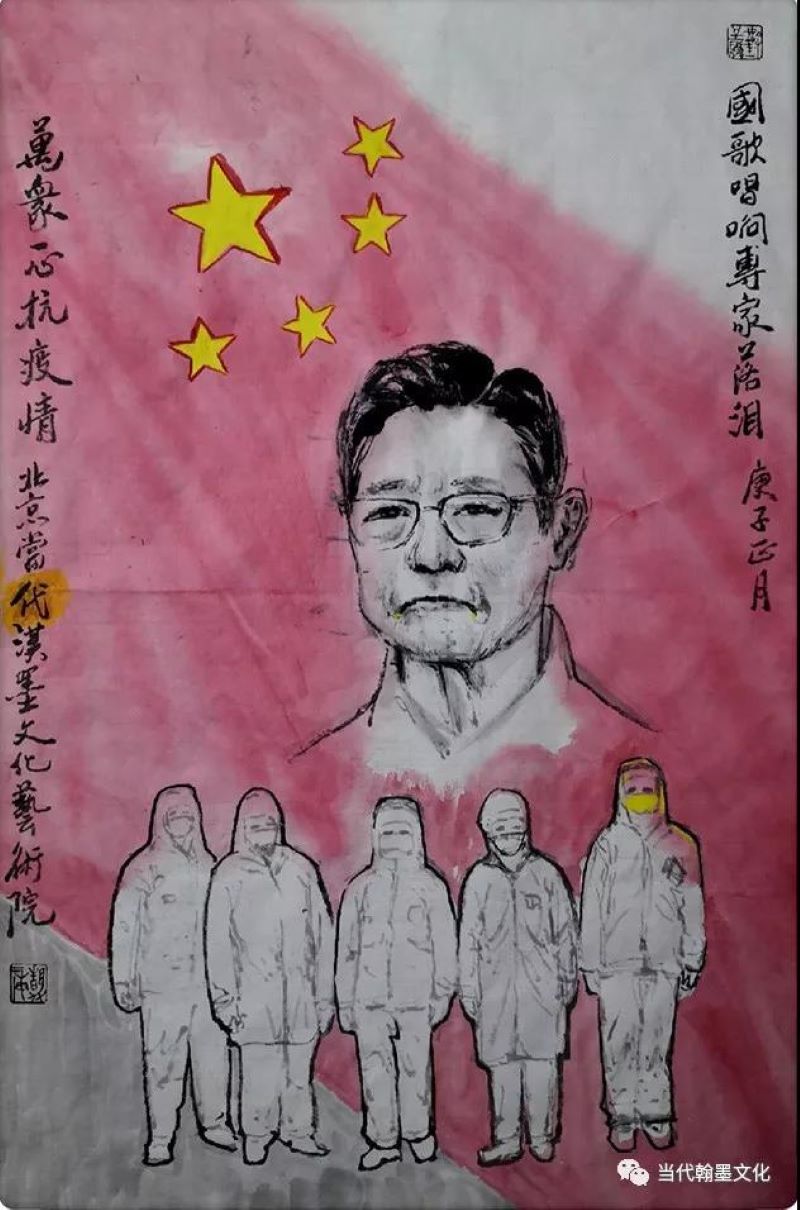 國歌唱响專家落泪
庚子正月
萬衆一心抗疫情
北京當代漢墨文化藝術院
当代翰墨文化